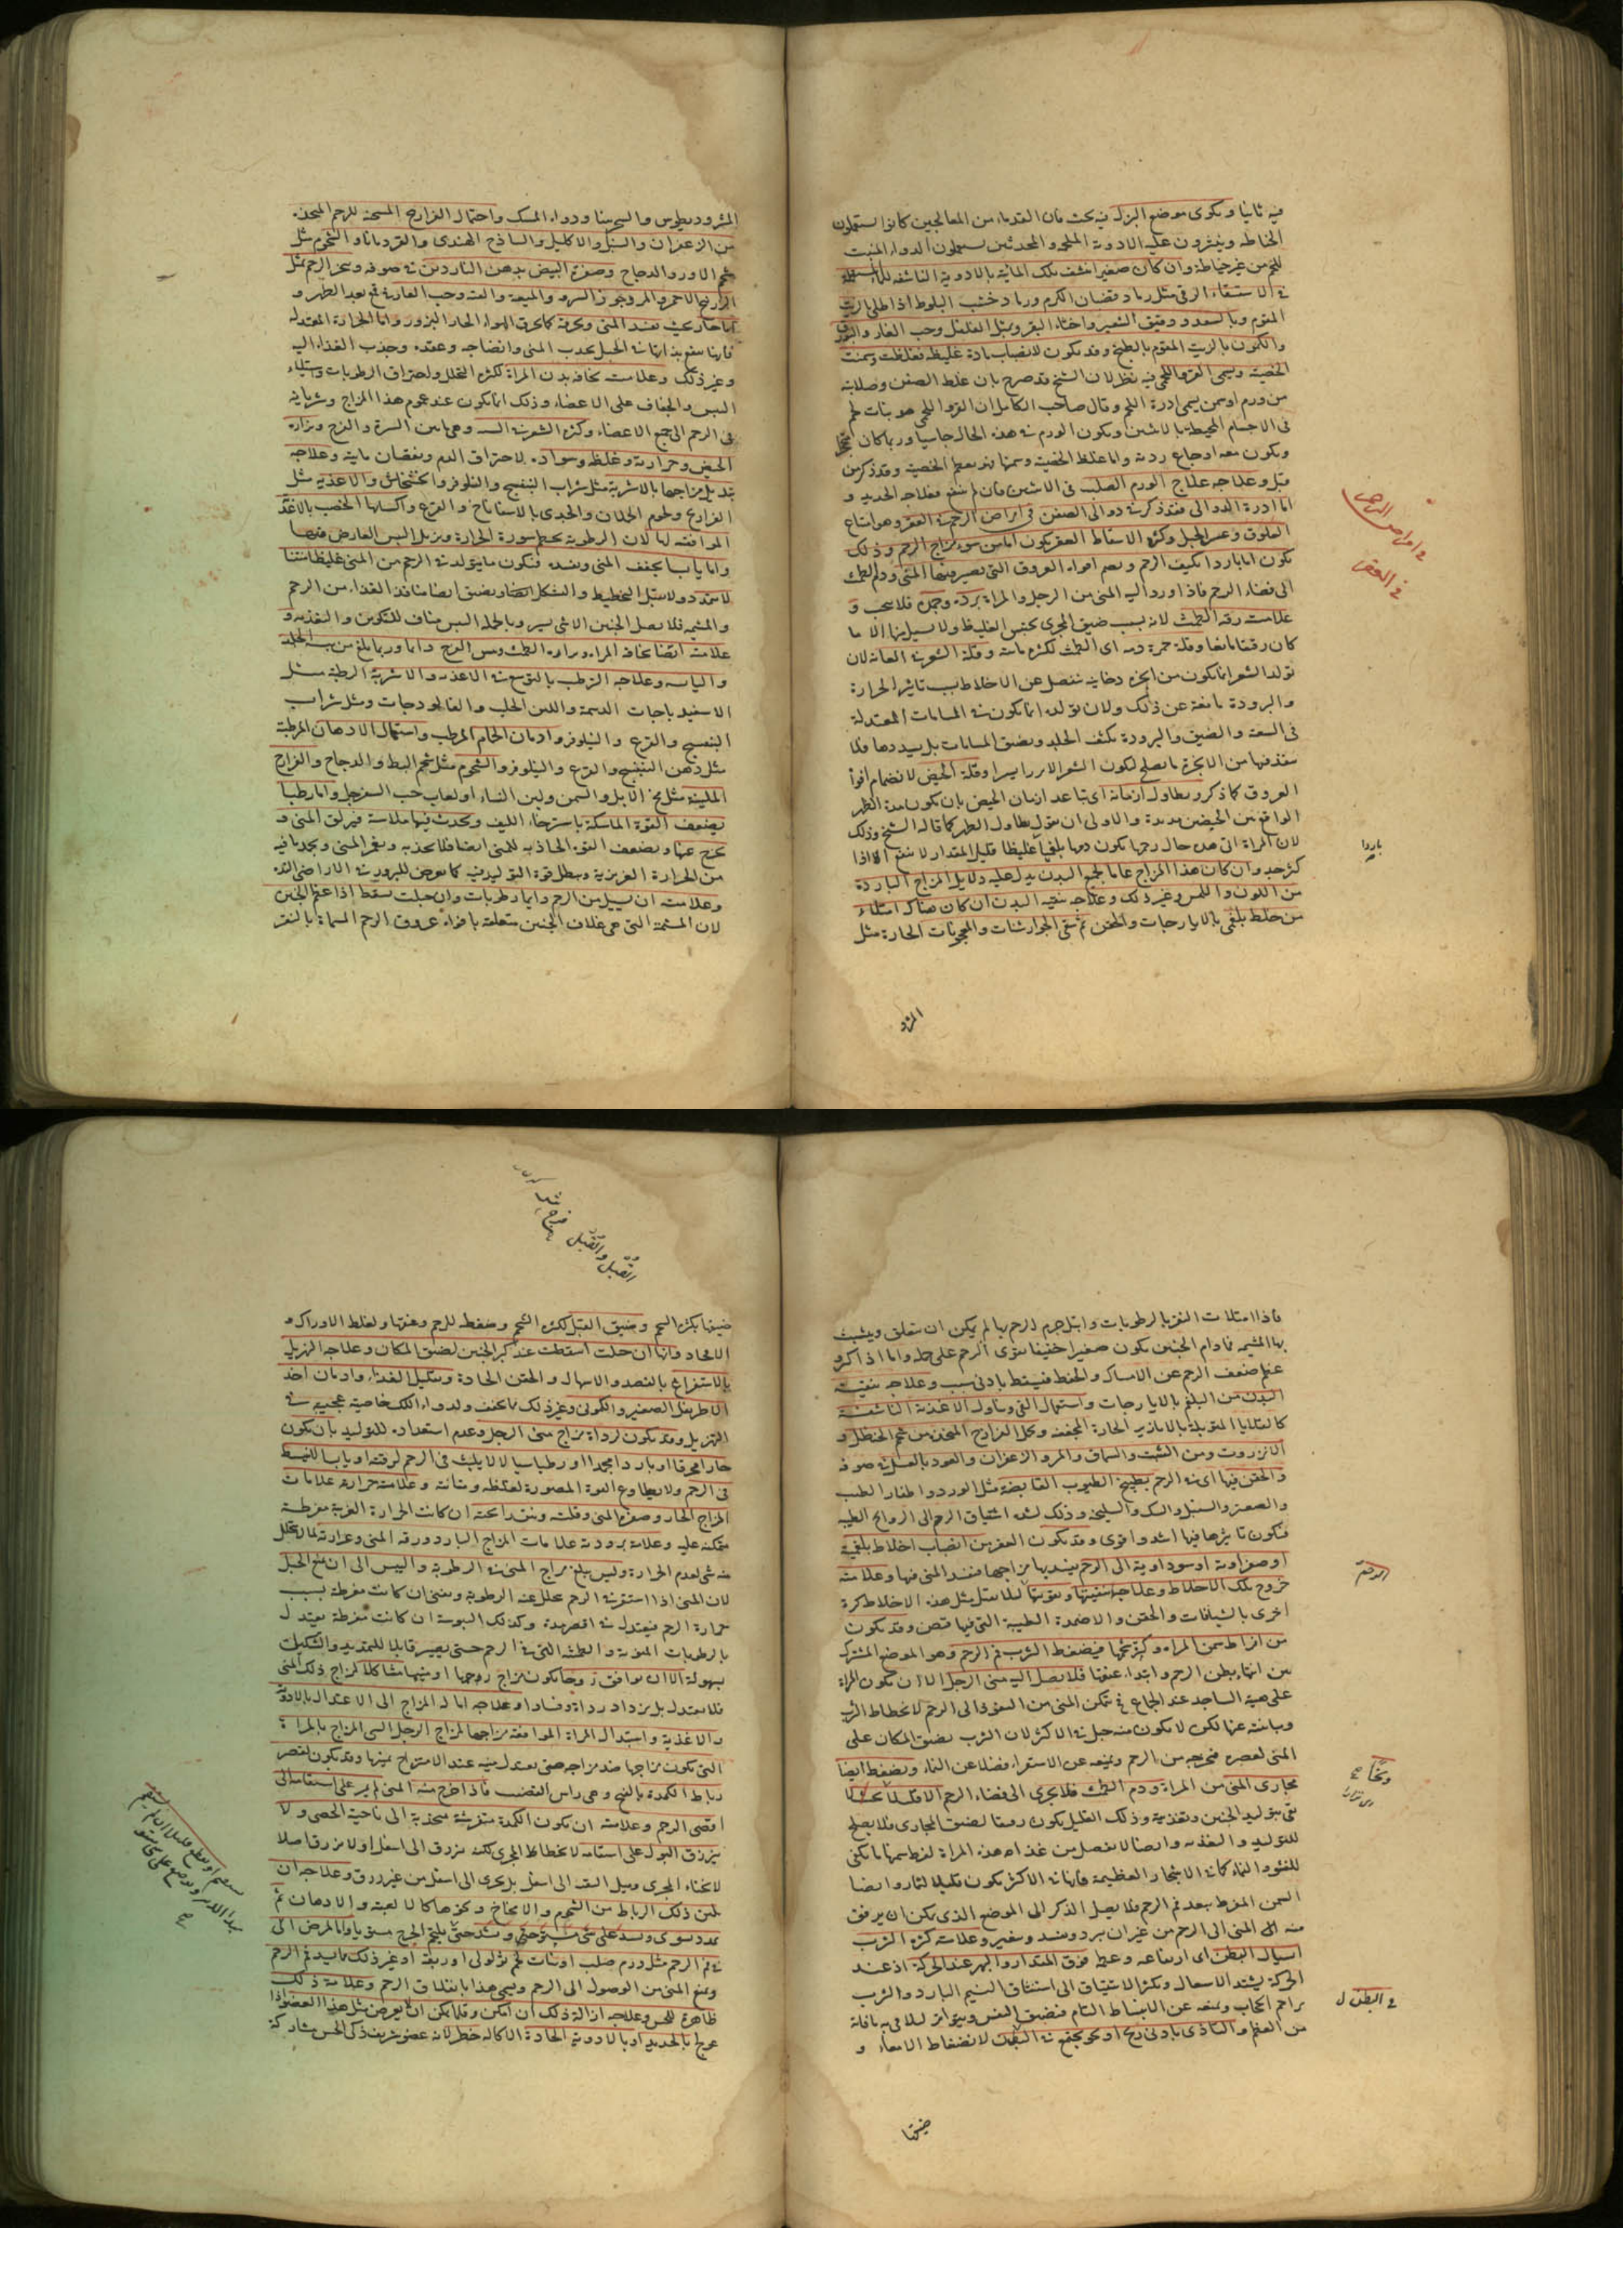 فيه ثانيا ويكوى موضع البزل فيه بحث فان القدماء من المعالجين كانوا يستعملون
الخياطة وينثرون عليه الادوية الملحمة والمحدثين يستعملون الدواء المنبت
للحم من غير خياطة وان كان صغيرا نشف تلك المائية بالادوية الناشفة للماء
في الاستسقاء الزقى مثل رماد قضبان الكرم ورماد خشب البلوط اذا طلى بالزيت
المقوم وبالسعد ودقيق الشعير واخثاء البقر وبمثل الفلفل وحب الغار والبورق
والكمون بالزيت المقوم بالطبخ وقد يكون لانصباب مادة غليظة فغلظت وسمنت
الخصية ويسمى القرو اللحمى فيه نظر لان الشيخ قد صرح بان غلظ الصفن وصلابته
من ورم او سمن يسمى ادرة اللحم وقال صاحب الكامل ان القرو اللحمى هو نبات لحم
فى الاجسام المحيطة بالانثيين ويكون الورم في هذه الحال جاسيا وربما كان متحجرا
ويكون معه اوجاع ردية واما غلظ الخصية وسمنها فهو تعظم الخصية وقد ذكر من
قبل وعلاجه علاج الورم الصلب فى الانثيين فان لم ينفع فعلاجه الحديد و
اما ادرة الدوالى فقد ذكر في دوالى الصفن فى امراض الرحم في العقر وهو امتناع
العلوق وعسر الحبل وكثرة الاسقاط العقر يكون اما من سوء مزاج الرحم وذلك
يكون اما باردا يكثف الرحم ويضم افواه العروق التى يصير منها المنى ودم الطمث
الى فضاء الرحم فاذا ورد اليه المنى من الرجل والمراة برده وجمده فلا ينجب و
علامته رقة الطمث لانه بسبب ضيق المجرى يحتبس الغليظ ولا يسيل منها الا ما
كان رقيقا مائعا وقلة حمرة دمه اى الطمث لكثرة مائيته وقلة الشعر في العانة لان
تولد الشعر انما يكون من ابخرة دخانية تنفصل عن الاخلاط بسبب تاثير الحرارة
والبرودة مانعة عن ذلك ولان تولده انما يكون في المسامات المعتدلة
فى السعة والضيق والبرودة تكثف الجلد وتضيق المسامات بل تسددها فلا
ينفذ فيها من الابخرة ما يصلح لتكون الشعر الا نزرا يسيرا وقلة الحيض لانضمام افواه
العروق كما ذكر وتطاول ازمانه اى تباعد ازمان الحيض بان يكون مدة الطهر
الواقع بين الحيضتين مديدة والاولى ان يقول تطاول الطهر كما قاله الشيخ وذلك
لان المراة التى هذه حال رحمها يكون دمها بلغميا غليظا قليل المقدار لا يندفع الا اذا
كثر جدا وان كان هذا المزاج عاما لجميع البدن يدل عليه دلايل المزاج الباردة
من اللون والملمس وغير ذلك وعلاجه تنقية البدن ان كان هناك امتلاء
من خلط بلغمى بالايارجات والحقن ثم سقى الجوارشنات والمعجونات الحارة مثل
المثرو
في امراض الرحم
في العقر
باردا
المثروديطوس والسجرينا ودواء المسك واحتمال الفرازج المسخنة للرحم المتخذة
من الزعفران والسنبل والاكليل والساذج الهندى والقردمانا والشحوم مثل
شحم الاوز والدجاج وصفرة البيض بدهن الناردين في صوفة وتبخير الرحم بمثل
الزرنيخ الاحمر والمر وجوز السرو والميعة والقنة وحب الغار في قمع بعد الطهر و
اما حار بحيث يفسد المنى ويحرقه كما يحرق الهواء الحار البزور واما الحرارة المعتدلة
فانها تنفع
وغير ذلك وعلامته نحافة بدن المراة لكثرة التحلل ولاحتراق الرطوبات واستيلاء
اليبس والجفاف على الاعضاء وذلك انما يكون عند عموم هذا المزاج وسريانه
من الرحم الى جميع الاعضاء وكثرة الشعر في وهى ما بين السرة والفرج ونزارة
الحيض وحرارته وغلظه وسواده لاحتراق الدم ونقصان مائيته وعلاجه
تبديل مزاجها بالاشربة مثل شراب البنفسج والنيلوفر والخشخاش والاغذية مثل
الفراريج ولحوم الحملان والجدى بالاسفاناخ والقرع واكسابها الخصب بالاغذية
الموافقة لها لان الرطوبة تحط سورة الحرارة وتزيل اليبس العارض منها
واما يابسا يجفف المنى ويفسده فيكون ما يتولد في الرحم من المنى غليظا متينا
لا يتمدد ولا يقبل التخطيط والتشكل ايضا ويضيق ايضا منافذ الغذاء من الرحم
والمشيمة فلا يصل الى الجنين الا شئ يسير وبالجملة اليبس مناف للتكوين والتغذية و
علامته ايضا نحافة المراة ونزارة الطمث ويبس الفرج دائما وربما بلغ من يبسه الجلد
واليابسة وعلاجه الترطيب بالتوسع في الاغذية والاشربة الرطبة مثل
الاسفيدباجات الدسمة واللبن الحليب والفالوذجات ومثل شراب
البنفسج والقرع والنيلوفر وادمان الحمام المرطب واستعمال الادهان المرطبة
مثل دهن البنفسج والقرع والنيلوفر والشحوم مثل شحم البط والدجاج والفرازج
الملينة مثل مخ الابل والسمن ولبن النساء او لعاب حب السفرجل واما رطبا
يضعف القوة الماسكة باسترخاء الليف ويحدث فيها ملاسة فيزلق المنى و
يخرج عنها ويضعف القوة الجاذبة للمنى ايضا فلا تجذبه ويغمر المنى ويخمد ما فيه
من الحرارة الغريزية ويبطل قوة التوليد فيه كما يعرض للبزور في الاراضى النزة
وعلامته ان يسيل من الرحم دايما رطوبات وان حبلت يسقط اذا عظم الجنين
لان المشيمة التى هى غلاف الجنين متعلقة بافواه عروق الرحم المسماة بالنقر
فاذا امتلات النقر بالرطوبات وابتل جرم الرحم بها لم يمكن ان يتعلق ويتشبث
بها المشيمة فما دام الجنين يكون صغيرا خفيفا يقوى الرحم على حمله واما اذا كبر و
عظم ضعف الرحم عن الامساك والحفظ فيسقط بادنى سبب وعلاجه تنقية
البدن من البلغم بالايارجات واستعمال القئ وتناول الاغذية الناشفة
كالقلايا المتوبلة بالابازير الحارة المجففة وتحمل الفرازج المتخذة من شحم الحنظل و
الانزروت ومن الشب والسماق والمر والزعفران والعود بالعسل في صوفة
والحقن فيها اى في الرحم بطبيخ الطيوب القابضة مثل الورد واظفار الطيب
والصعتر والسنبل والسك والسليخة وذلك لشدة اشتياق الرحم الى الروايح الطيبة
فيكون تاثيرها فيها اشد واقوى وقد يكون العقر من انصباب اخلاط بلغمية
او صفراوية او سوداوية الى الرحم يفسد بها مزاجها فيفسد المنى فيها وعلامته
خروج تلك الاخلاط وعلاجه تنقيتها وتقويتها لئلا يقبل مثل هذه الاخلاط كرة
اخرى بالشيافات والحقن والاضمدة الطيبة التى فيها قبض وقد يكون
من افراط سمن المراة وكثرة شحمها فيضغط الثرب فم الرحم وهو الموضع المشترك
بين انتهاء بطن الرحم وابتداء عنقها فلا يصل اليه منى الرجل الا ان يكون المراة
على هيئة الساجد عند الجماع فيتمكن المنى من النفوذ الى الرحم لانحطاط الثرب
وتباينه عنها لكن لا يكون منه حبل في الاكثر لان الثرب يضيق المكان على
المنى لعصره فيخرجه من الرحم ويمنعه عن الاستقرار فضلا عن النماء ويضغط ايضا
مجارى المنى من المراة ودم الطمث فلا يجرى الى فضاء الرحم الا قليلا بحيث لا
يفى بتوليد الجنين وتغذيته وذلك القليل يكون رقيقا لضيق المجارى فلا يصلح
للتوليد والتغذية وايضا لا يفضل من غذاء هذه المراة لفرط سمنها ما يكفى
للنشو والنماء كما في الاشجار العظيمة فانها في الاكثر تكون قليلة الثمار وايضا
السمن المفرط يبعد فم الرحم فلا يصل الذكر الى الموضع الذى يمكن ان يزرق
منه المنى الى الرحم من غير ان يبرد ويفسد ويتغير وعلامته كثرة الثرب
اسيال البطن اى ارتفاعه وعظمه فوق المقدار والبهر عند الحركة اذ عند
الحركة يشتد الاسعال ويكثر الاشتياق الى استنشاق النسيم البارد والثرب
يزاحم الحجاب ويمنعه عن الانبساط التام فيضيق النفس ويتواتر ليتلافى به ما فاته
من العظم والتاذى بادنى ريح او نحو يجتمع في البطن لانضغاط الامعاء و
ضيقها
الرحم
في البطن ل
ضيقها بكثرة الشحم وضيق القبل لكثرة الشحم وضغطه للرحم وعنقها ولغلظ الاوراك و
الافخاذ وانها ان حبلت اسقطت عند كبر الجنين لضيق المكان وعلاجه التهزيل
بالاستفراغ بالفصد والاسهال والحقن الحادة وتقليل الغذاء وادمان اخذ
الاطريفل الصغير والكمونى وغير ذلك مما يجفف ولدواء اللك خاصية عجيبة في
التهزيل وقد يكون لرداءة مزاج منى الرجل وعدم استعداده للتوليد بان يكون
حارا محرقا او باردا مجمدا او رطبا سيالا لا يلبث فى الرحم لرقته او يابسا لا ينبسط
فى الرحم ولا يطاوع القوة المصورة لغلظه ومتانته وعلامة حرارته علامات
المزاج الحار وصفرة المنى وقلته ونتن رائحته ان كانت الحرارة الغريبة مفرطة
متمكنة عليه وعلامة برودته علامات المزاج البارد ورقة المنى وغزارته لما لا يتحلل
منه شئ لعدم الحرارة وليس يبلغ مزاج المنى في الرطوبة واليبس الى ان يمنع الحبل
لان المنى اذا استقر في الرحم تحلل عنه الرطوبة وينضج ان كانت مفرطة بسبب
حرارة الرحم فيعتدل في اقصر مدة وكذلك اليبوسة ان كانت مفرطة يعتدل
بالرطوبات المنوية والطمثية التى في الرحم حتى يصير قابلا للتمديد والتشكيل
بسهولة الا ان يوافق زوجا يكون مزاج رحمها او منيها مشاكلا لمزاج ذلك المنى
فلا يعتدل بل يزداد رداءة وفسادا وعلاجه امالة المزاج الى الاعتدال بالادوية
والاغذية واستبدال المراة الموافقة مزاجها لمزاج الرجل السئ المزاج بالمراة
التى يكون مزاجها ضد مزاجه حتى يعتدل منيه عند الامتزاج بمنيها وقد يكون لقصر
رباط الكمرة بالفتح وهى راس القضيب فاذا خرج منه المنى لم يمر على استقامة الى
اقصى الرحم وعلامته ان يكون الكمرة متقوسة منجذبة الى ناحية الخصى ولا
ينزرق البول على استقامة لانحطاط المجرى لكنه ينزرق الى اسفل او لا ينزرق اصلا
لانحناء المجرى وميل الثقبة الى اسفل بل يجرى الى اسفل من غير زرق وعلاجه ان
يلين ذلك الرباط من الشحوم والامخاخ ونحوها كالالعبة والادهان ثم
يمدد ويسوى ويشد على شئ مستو حتى يلتحم الجرح مستويا واما لمرض الى
في فم الرحم مثل ورم صلب او نبات لحم ثؤلولى او ربقة او غير ذلك مما يسد فم الرحم
ويمنع المنى من الوصول الى الرحم ويسمى هذا بانغلاق الرحم وعلامة ذلك
ظاهرة للحس وعلاجه ازالة ذلك ان امكن وقلما يمكن ان يعرض مثل هذا العضو اذا
عولج بالحديد او بالادوية الحادة الاكالة خطر لانه عضو شريف ذكى الحس مشاركة
القبل والقبل
فرج